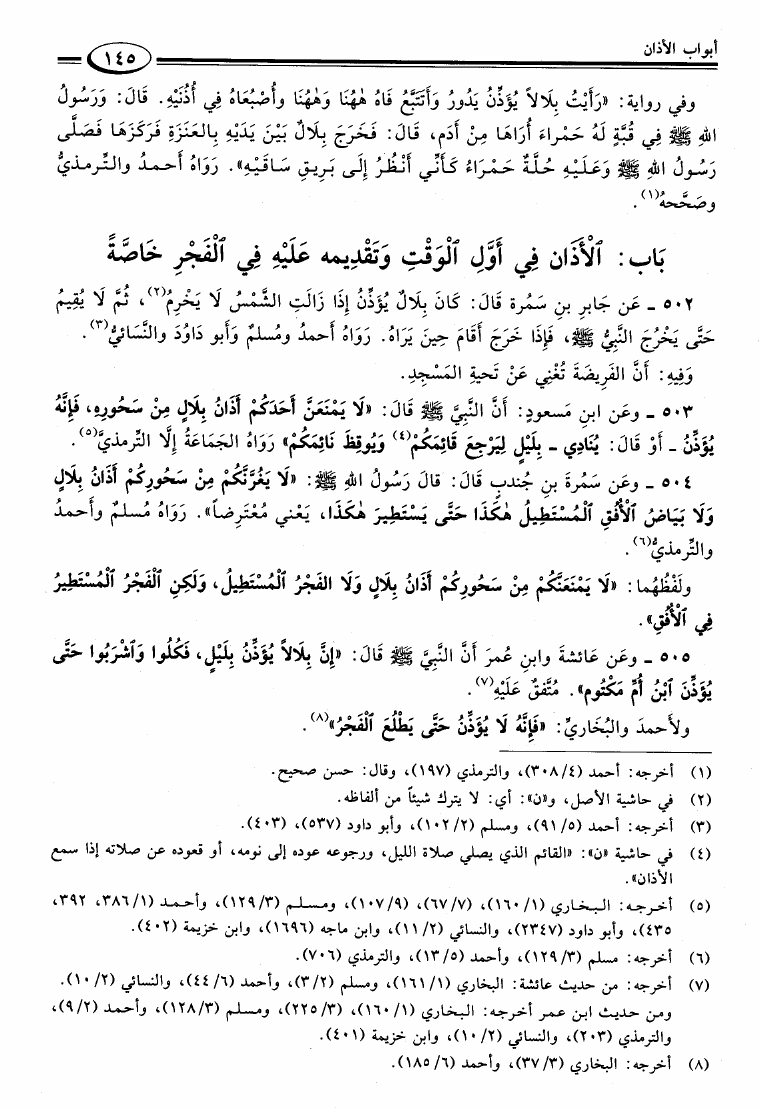 أبواب الأذان
١٤٥
وفي رواية: «رَأَيْتُ بِلَالاً يُؤَذِّنُ يَدُورُ وَأَتَتَبَّعُ فَاهُ هٰهُنَا وَهٰهُنَا وأُصْبُعَاهُ فِي أُذُنَيْهِ. قَالَ: وَرَسُولُ
اللهِ ﷺ فِي قُبَّةٍ لَهُ حَمْرَاءَ أُرَاهَا مِنْ أَدَمٍ، قَالَ: فَخَرَجَ بِلَالٌ بَيْنَ يَدَيْهِ بِالعَنَزَةِ فَرَكَزَهَا فَصَلَّى
رَسُولُ اللهِ ﷺ وَعَلَيْهِ حُلَّةٌ حَمْرَاءُ كَأَنِّي أَنْظُرُ إِلَى بَرِيقِ سَاقَيْهِ». رَوَاهُ أَحمدُ والتِّرمذيُّ
وصَحَّحهُ(١).
بَاب: ٱلْأَذَان فِي أَوَّلِ ٱلْوَقْتِ وَتَقْدِيمه عَلَيْهِ فِي ٱلْفَجْرِ خَاصَّةً
٥٠٢ ـ عَن جَابرِ بنِ سَمُرة قَالَ: كَانَ بِلَالٌ يُؤَذِّنُ إِذَا زَالَتِ الشَّمْسُ لَا يَخْرِمُ(٢)، ثُمَّ لَا يُقِيمُ
حَتَّى يَخْرُجَ النَّبِيُّ ﷺ، فَإِذَا خَرَجَ أَقَامَ حِينَ يَرَاهُ. رَوَاهُ أحمدُ ومُسلمٌ وأَبو دَاوُدَ والنَّسَائيُّ(٣).
وَفِيهِ: أَنَّ الفَرِيضَةَ تُغْنِي عَنْ تَحيةِ المَسْجِدِ.
٥٠٣ ـ وعَن ابنِ مَسعودٍ: أَنَّ النَّبِيَّ ﷺ قَالَ: «لَا يَمْنَعَنَّ أَحَدَكُمْ أَذَانُ بِلَالٍ مِنْ سَحُورِهِ، فَإِنَّهُ
يُؤَذِّنُ ـ أَوْ قَالَ: يُنَادِي ـ بِلَيْلٍ لِيَرْجِعَ قَائِمَكُمْ(٤) وَيُوقِظَ نَائِمَكُمْ» رَوَاهُ الجَمَاعَةُ إِلَّا التِّرمذيَّ(٥).
٥٠٤ ـ وعَن سَمُرةَ بنِ جُندبٍ قَالَ: قَالَ رَسُولُ اللهِ ﷺ: «لَا يَغُرَّنَّكُمْ مِنْ سَحُورِكُمْ أَذَانُ بِلَالٍ
وَلَا بَيَاضُ ٱلْأُفُقِ ٱلْمُسْتَطِيلُ هٰكَذَا حَتَّى يَسْتَطِيرَ هٰكَذَا، يَعْني مُعْتَرِضاً». رَوَاهُ مُسلمٌ وأَحمدُ
والتِّرمذيُّ(٦).
ولَفْظُهُما: «لَا يَمْنَعَنَّكُمْ مِنْ سَحُورِكُمْ أَذَانُ بِلَالٍ وَلَا الفَجْرُ ٱلْمُسْتَطِيلُ، وَلَكِنِ ٱلْفَجْرُ ٱلْمُسْتَطِيرُ
فِي ٱلْأُفُقِ».
٥٠٥ ـ وعَن عَائشةَ وابنِ عُمرَ أَنَّ النَّبِيَّ ﷺ قَالَ: «إِنَّ بِلَالاً يُؤَذِّنُ بِلَيْلٍ، فَكُلُوا وَٱشْرَبُوا حَتَّى
يُؤَذِّنَ ٱبْنُ أُمِّ مَكْتُومٍ». مُتَّفقٌ عَلَيْهِ(٧).
ولأَحمدَ والبُخَاريِّ: «فَإِنَّهُ لَا يُؤَذِّنُ حَتَّى يَطْلُعَ ٱلْفَجْرُ»(٨).
(١) أخرجه: أحمد (٣٠٨/٤)، والترمذي (١٩٧)، وقال: حسن صحيح.
(٢) في حاشية الأصل، و«ن»: أي: لا يترك شيئاً من ألفاظه.
(٣) أخرجه: أحمد (٩١/٥)، ومسلم (١٠٢/٢)، وأبو داود (٥٣٧)، (٤٠٣).
(٤) في حاشية «ن»: «القائم الذي يصلي صلاة الليل، ورجوعه عوده إلى نومه، أو قعوده عن صلاته إذا سمع
الأذان».
(٥) أخرجه: البخاري (١٦٠/١)، (٦٧/٧)، (١٠٧/٩)، ومسلم (١٢٩/٣)، وأحمد (٣٨٦/١، ٣٩٢،
٤٣٥)، وأبو داود (٢٣٤٧)، والنسائي (١١/٢)، وابن ماجه (١٦٩٦)، وابن خزيمة (٤٠٢).
(٦) أخرجه: مسلم (١٢٩/٣)، وأحمد (١٣/٥)، والترمذي (٧٠٦).
(٧) أخرجه: من حديث عائشة: البخاري (١٦١/١)، ومسلم (٣/٢)، وأحمد (٤٤/٦)، والنسائي (١٠/٢).
ومن حديث ابن عمر أخرجه: البخاري (١٦٠/١)، (٢٢٥/٣)، ومسلم (١٢٨/٣)، وأحمد (٩/٢)،
والترمذي (٢٠٣)، والنسائي (١٠/٢)، وابن خزيمة (٤٠١).
(٨) أخرجه: البخاري (٣٧/٣)، وأحمد (١٨٥/٦).